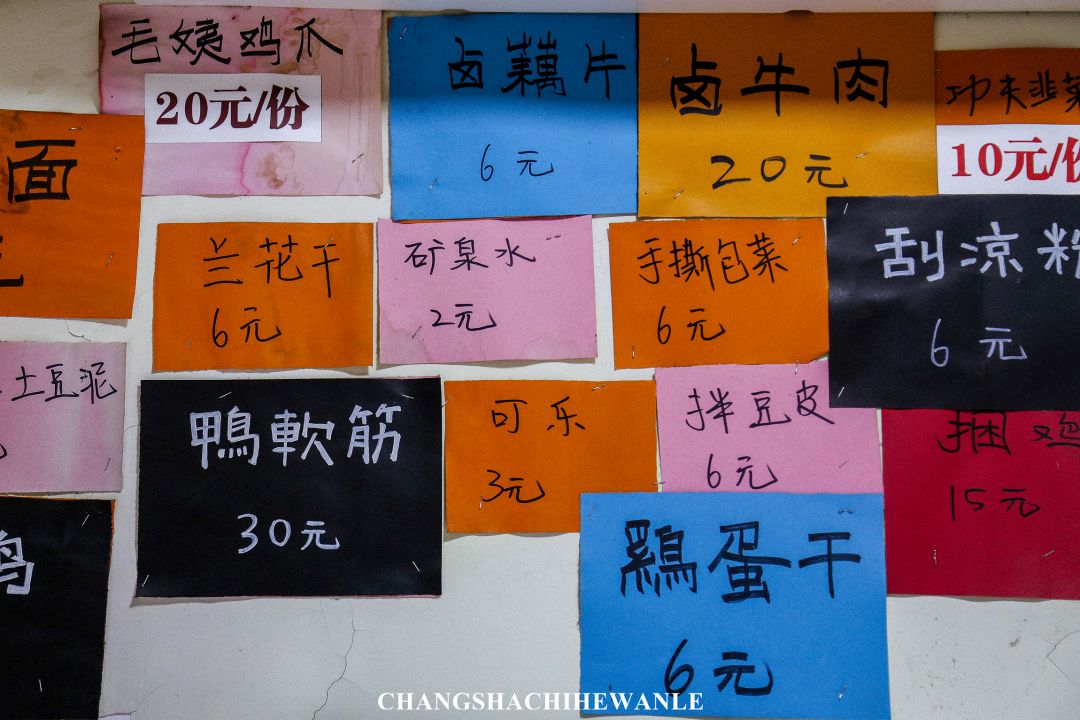 毛姨鸡爪
20元/份
卤藕片
6元
卤牛肉
20元
功夫韭菜
10元/份
面
兰花干
6元
矿泉水
2元
手撕包菜
6元
刮凉粉
6元
土豆泥
鴨軟筋
30元
可乐
3元
拌豆皮
6元
捆鸡
15元
鸡
鷄蛋干
6元
CHANGSHACHIHEWANLE